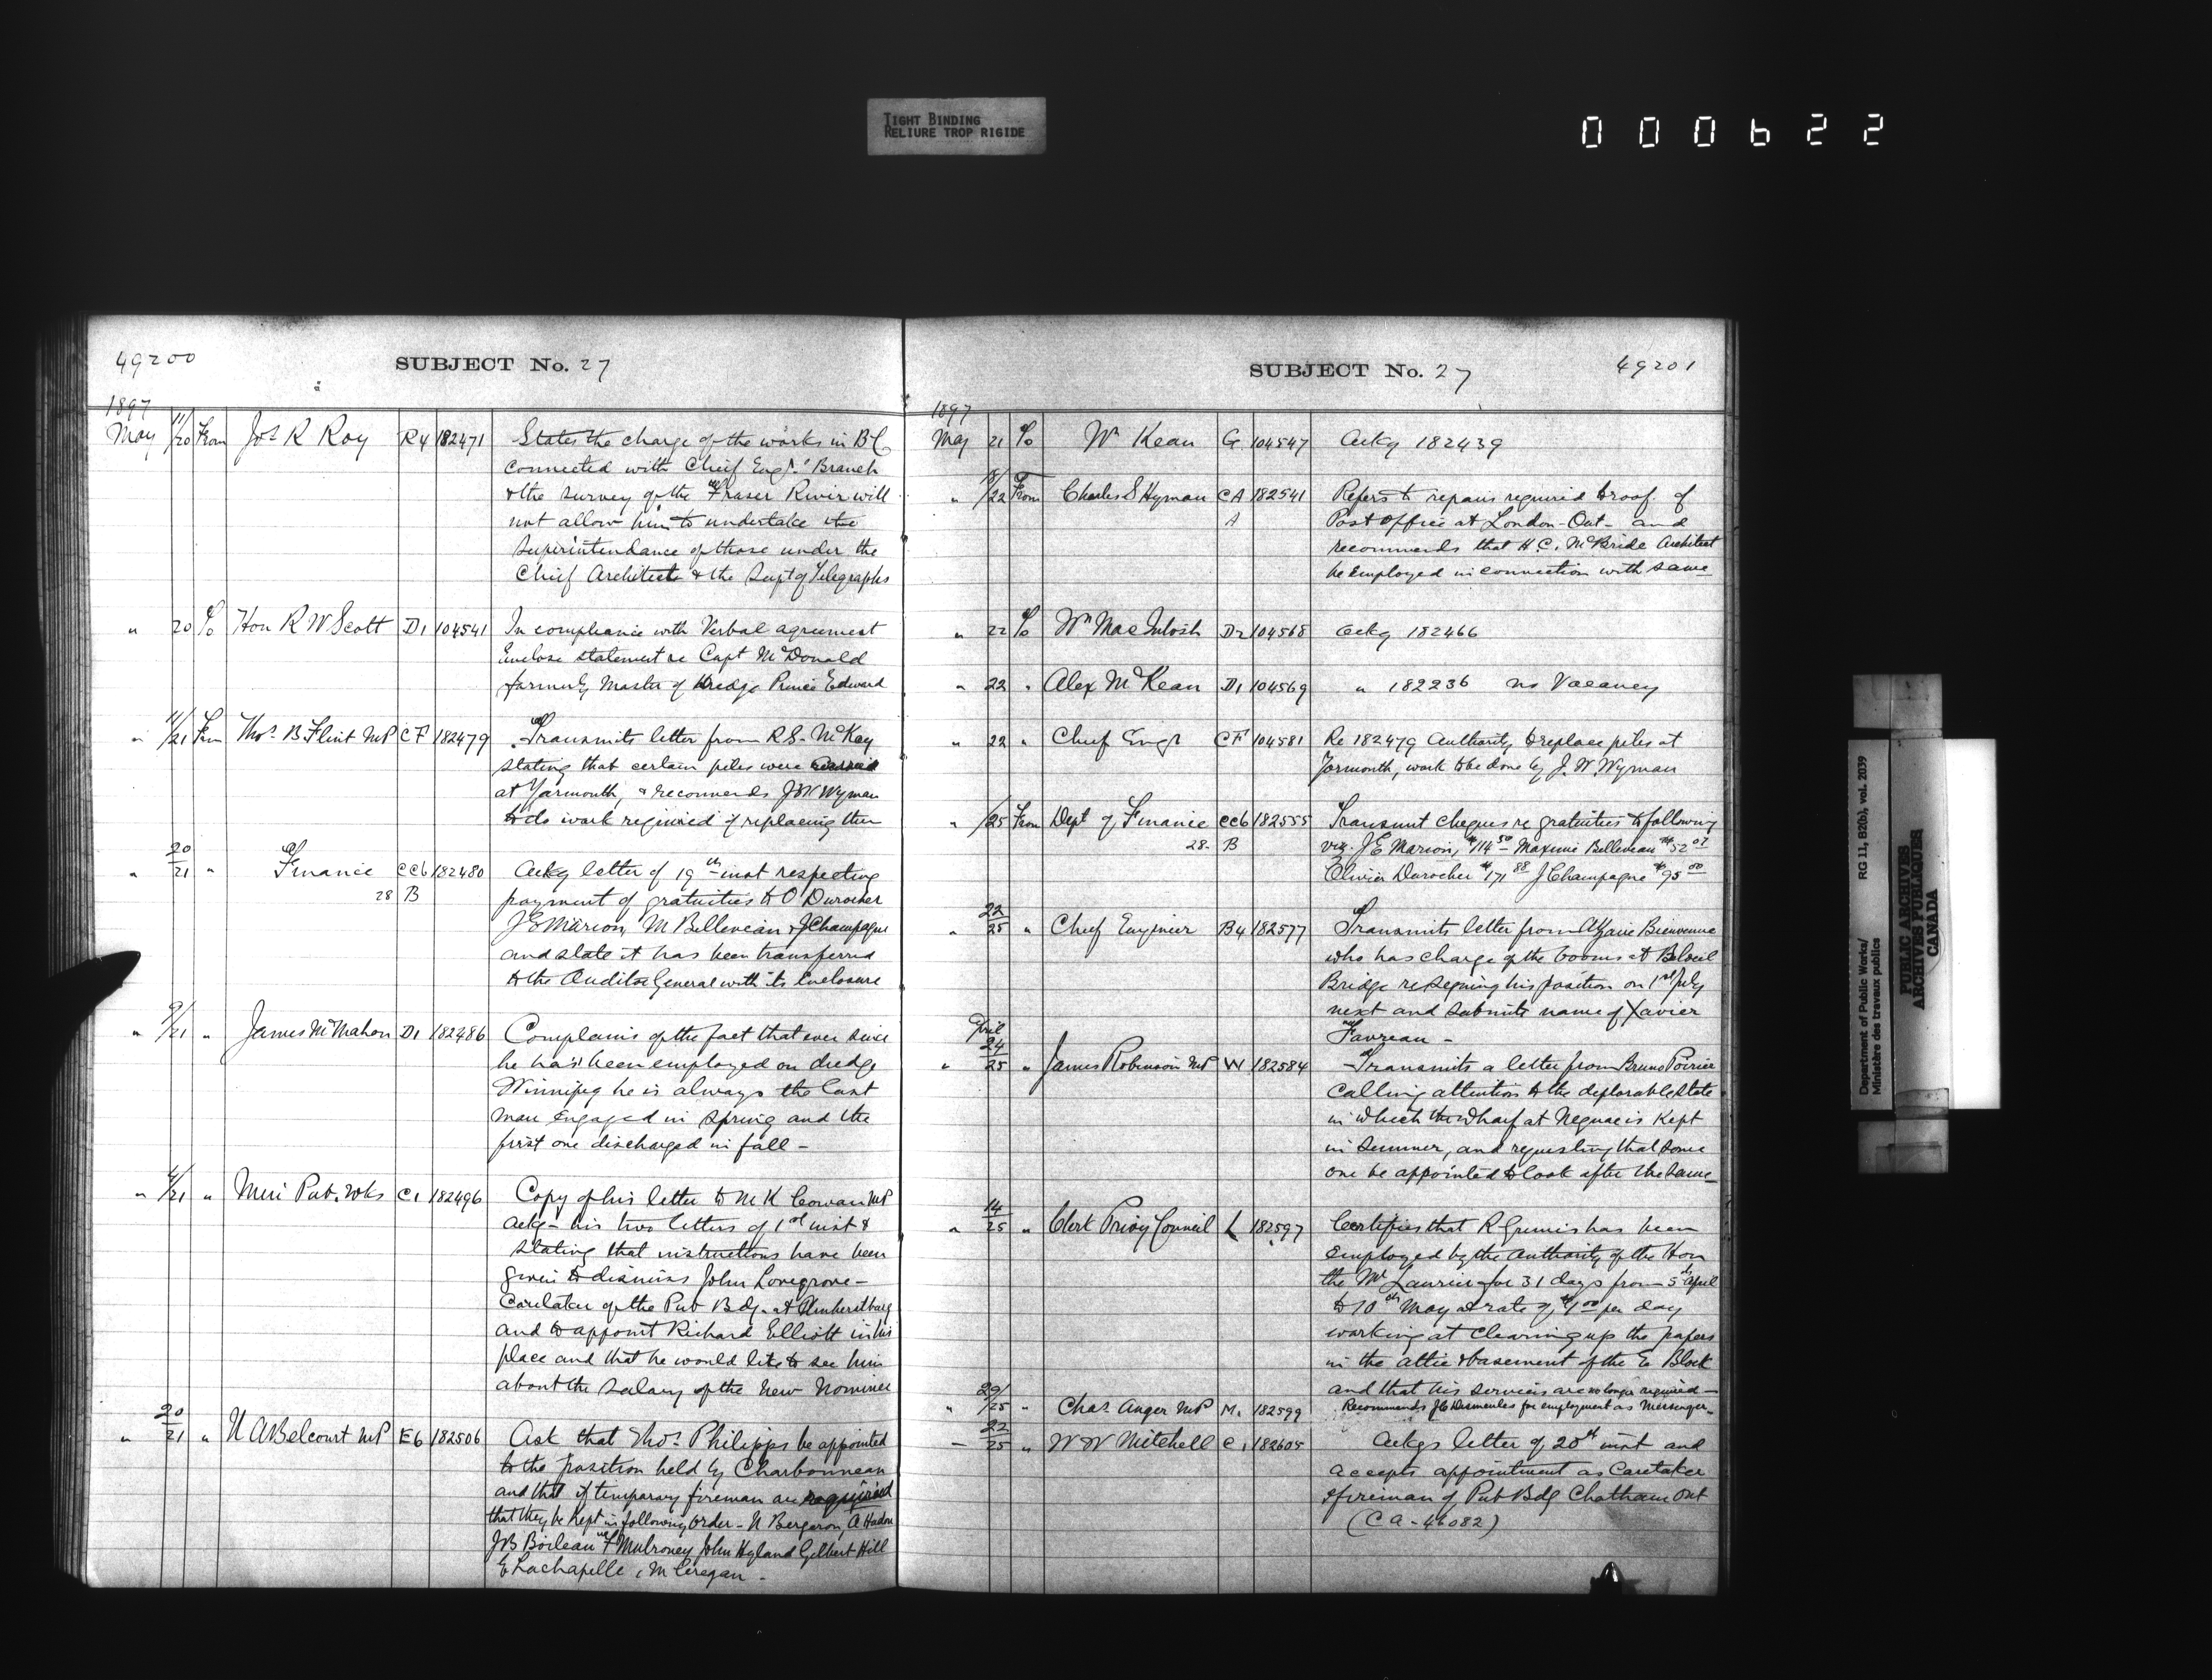 TIGHT BINDING
RELIURE TROP RIGIDE
000622
49200
SUBJECT No. 27
1897
May 11/20 From Jos R Roy R4 182471 States the charge of the works in BC
connected with Chief Engr's Branch
& the survey of the Fraser River will
not allow him to undertake the
Superintendance of those under the
Chief Architect & the Supt of Telegraphs
" 20 To Hon R W Scott D1 104541 In compliance with Verbal agreement
Enclose statement re Capt McDonald
formerly Master of dredge Prince Edward
" 11/21 From Thos B Flint MP CF 182479 Transmits letter from R S. McKay
stating that certain piles were
at Yarmouth, & recommends J W Wyman
to do work required of replacing them
" 20/21 " Finance CC6 182480 Ackg letter of 19th inst respecting
28 B payment of gratuities to O Durocher
J E Marion, M Belleveau & J Champagne
and state it has been transferred
to the Auditor General with its enclosure
" 9/21 " James McMahon D1 182486 Complains of the fact that ever since
he has been employed on dredge
Winnipeg he is always the last
man engaged in spring and the
first one discharged in fall -
" 4/21 " Mini Pub. Wks C1 182496 Copy of his letter to M K Cowan MP
ackg - his two letters of 1st inst &
stating that instructions have been
given to dismiss John Lovegrove -
Caretaker of the Pub Bdg. at Amherstburg
and to appoint Richard Elliott in his
place and that he would like to see him
about the salary of the new Nominee
" 20/21 " N A Belcourt MP E6 182506 Ask that Thos Philipps be appointed
to the position held by Charbonneau
and that if temporary fireman are required
that they be kept in following order - N Bergeron, A Hadon
J B Boileau F Mulroney John Hyland Gilbert Hill
E Lachapelle, M Ceregan -
SUBJECT No. 27
49201
1897
May 21 To Wm Kean G 104547 Ackg 182439
" 18/22 From Charles S Hyman CA 182541 Refers to repairs required to roof of
A Post Office at London - Ont - and
recommends that H. C. McBride Architect
be employed in connection with same
" 22 To Wm MacIntosh D2 104568 Ackg 182466
" 22 " Alex McKean D1 104569 " 182236 no Vacancy
" 22 " Chief Engr CF 104581 Re 182479 Authority to replace piles at
Yarmouth, work to be done by J. W. Wyman
" /25 From Dept of Finance CC6 182555 Transmit cheques re gratuities to following
28- B viz. J E Marion, $114 50 - Maxime Belleveau $52 07
Olivier Durocher $171 88 J Champagne $95 00
" 22/25 " Chief Engineer B4 182577 Transmits letter from Bienvenue
who has charge of the booms at Beloeil
Bridge resigning his position on 1st July
next and submits name of Xavier
Favreau -
April
" 24/25 " James Robinson MP W 182584 Transmits a letter from Bruno Poirier
calling attention to the deplorable state
in which the Wharf at Neguac is kept
in summer, and requesting that some
one be appointed to look after the same
" 14/25 " Clerk Privy Council L 182597 Certifies that R has been
employed by the authority of the Hon
the Mr Laurier for 31 days from 5th April
to 10th May at rate of $1 00 per day
working at cleaning up the papers
in the attic & basement of the E. Block
and that his services are no longer required -
" 20/25 " Chas Anger MP M. 182599 Recommends J C Desmeules for employment as Messenger -
- 22/25 " W W Mitchell C1 182605 Ackgs letter of 20th inst and
accepts appointment as Caretaker
& fireman of Pub Bdg Chatham Ont
(CA - 46082)
Department of Public Works/
Ministère des travaux publics
RG 11, B2(b), vol. 2039
PUBLIC ARCHIVES
ARCHIVES PUBLIQUES
CANADA